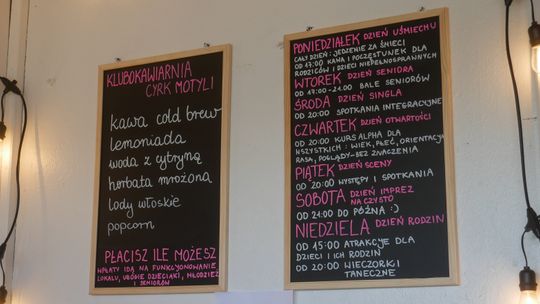 KLUBOKAWIARNIA
CYRK MOTYLI
kawa cold brew
lemoniada
woda z cytryną
herbata mrożona
lody włoskie
popcorn
PŁACISZ ILE MOŻESZ
WPŁATY IDĄ NA FUNKCJONOWANIE
LOKALU, UBOGIE DZIECIAKI, MŁODZIEŻ
I SENIORÓW
PONIEDZIAŁEK DZIEŃ UŚMIECHU
CAŁY DZIEŃ: JEDZENIE ZA ŚMIECI
OD 17:00 KAWA I POCZĘSTUNEK DLA
RODZICÓW I DZIECI NIEPEŁNOSPRAWNYCH
WTOREK DZIEŃ SENIORA
OD 17:00-21.00 BALE SENIORÓW
ŚRODA DZIEŃ SINGLA
OD 20:00 SPOTKANIA INTEGRACYJNE
CZWARTEK DZIEŃ OTWARTOŚCI
OD 20:00 KURS ALPHA DLA
WSZYSTKICH: WIEK, PŁEĆ, ORIENTACJA
RASA, POGLĄDY-BEZ ZNACZENIA
PIĄTEK DZIEŃ SCENY
OD 20:00 WYSTĘPY I SPOTKANIA
SOBOTA DZIEŃ IMPREZ
NA CZYSTO
OD 21:00 DO PÓŹNA :)
NIEDZIELA DZIEŃ RODZIN
OD 15:00 ATRAKCJE DLA
DZIECI I ICH RODZIN
OD 20:00 WIECZORKI
TANECZNE